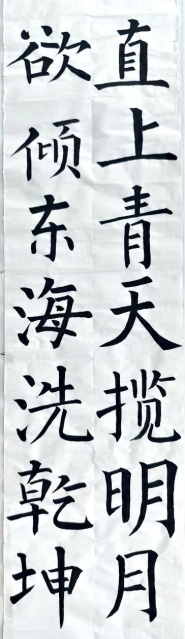 直上青天揽明月
欲倾东海洗乾坤